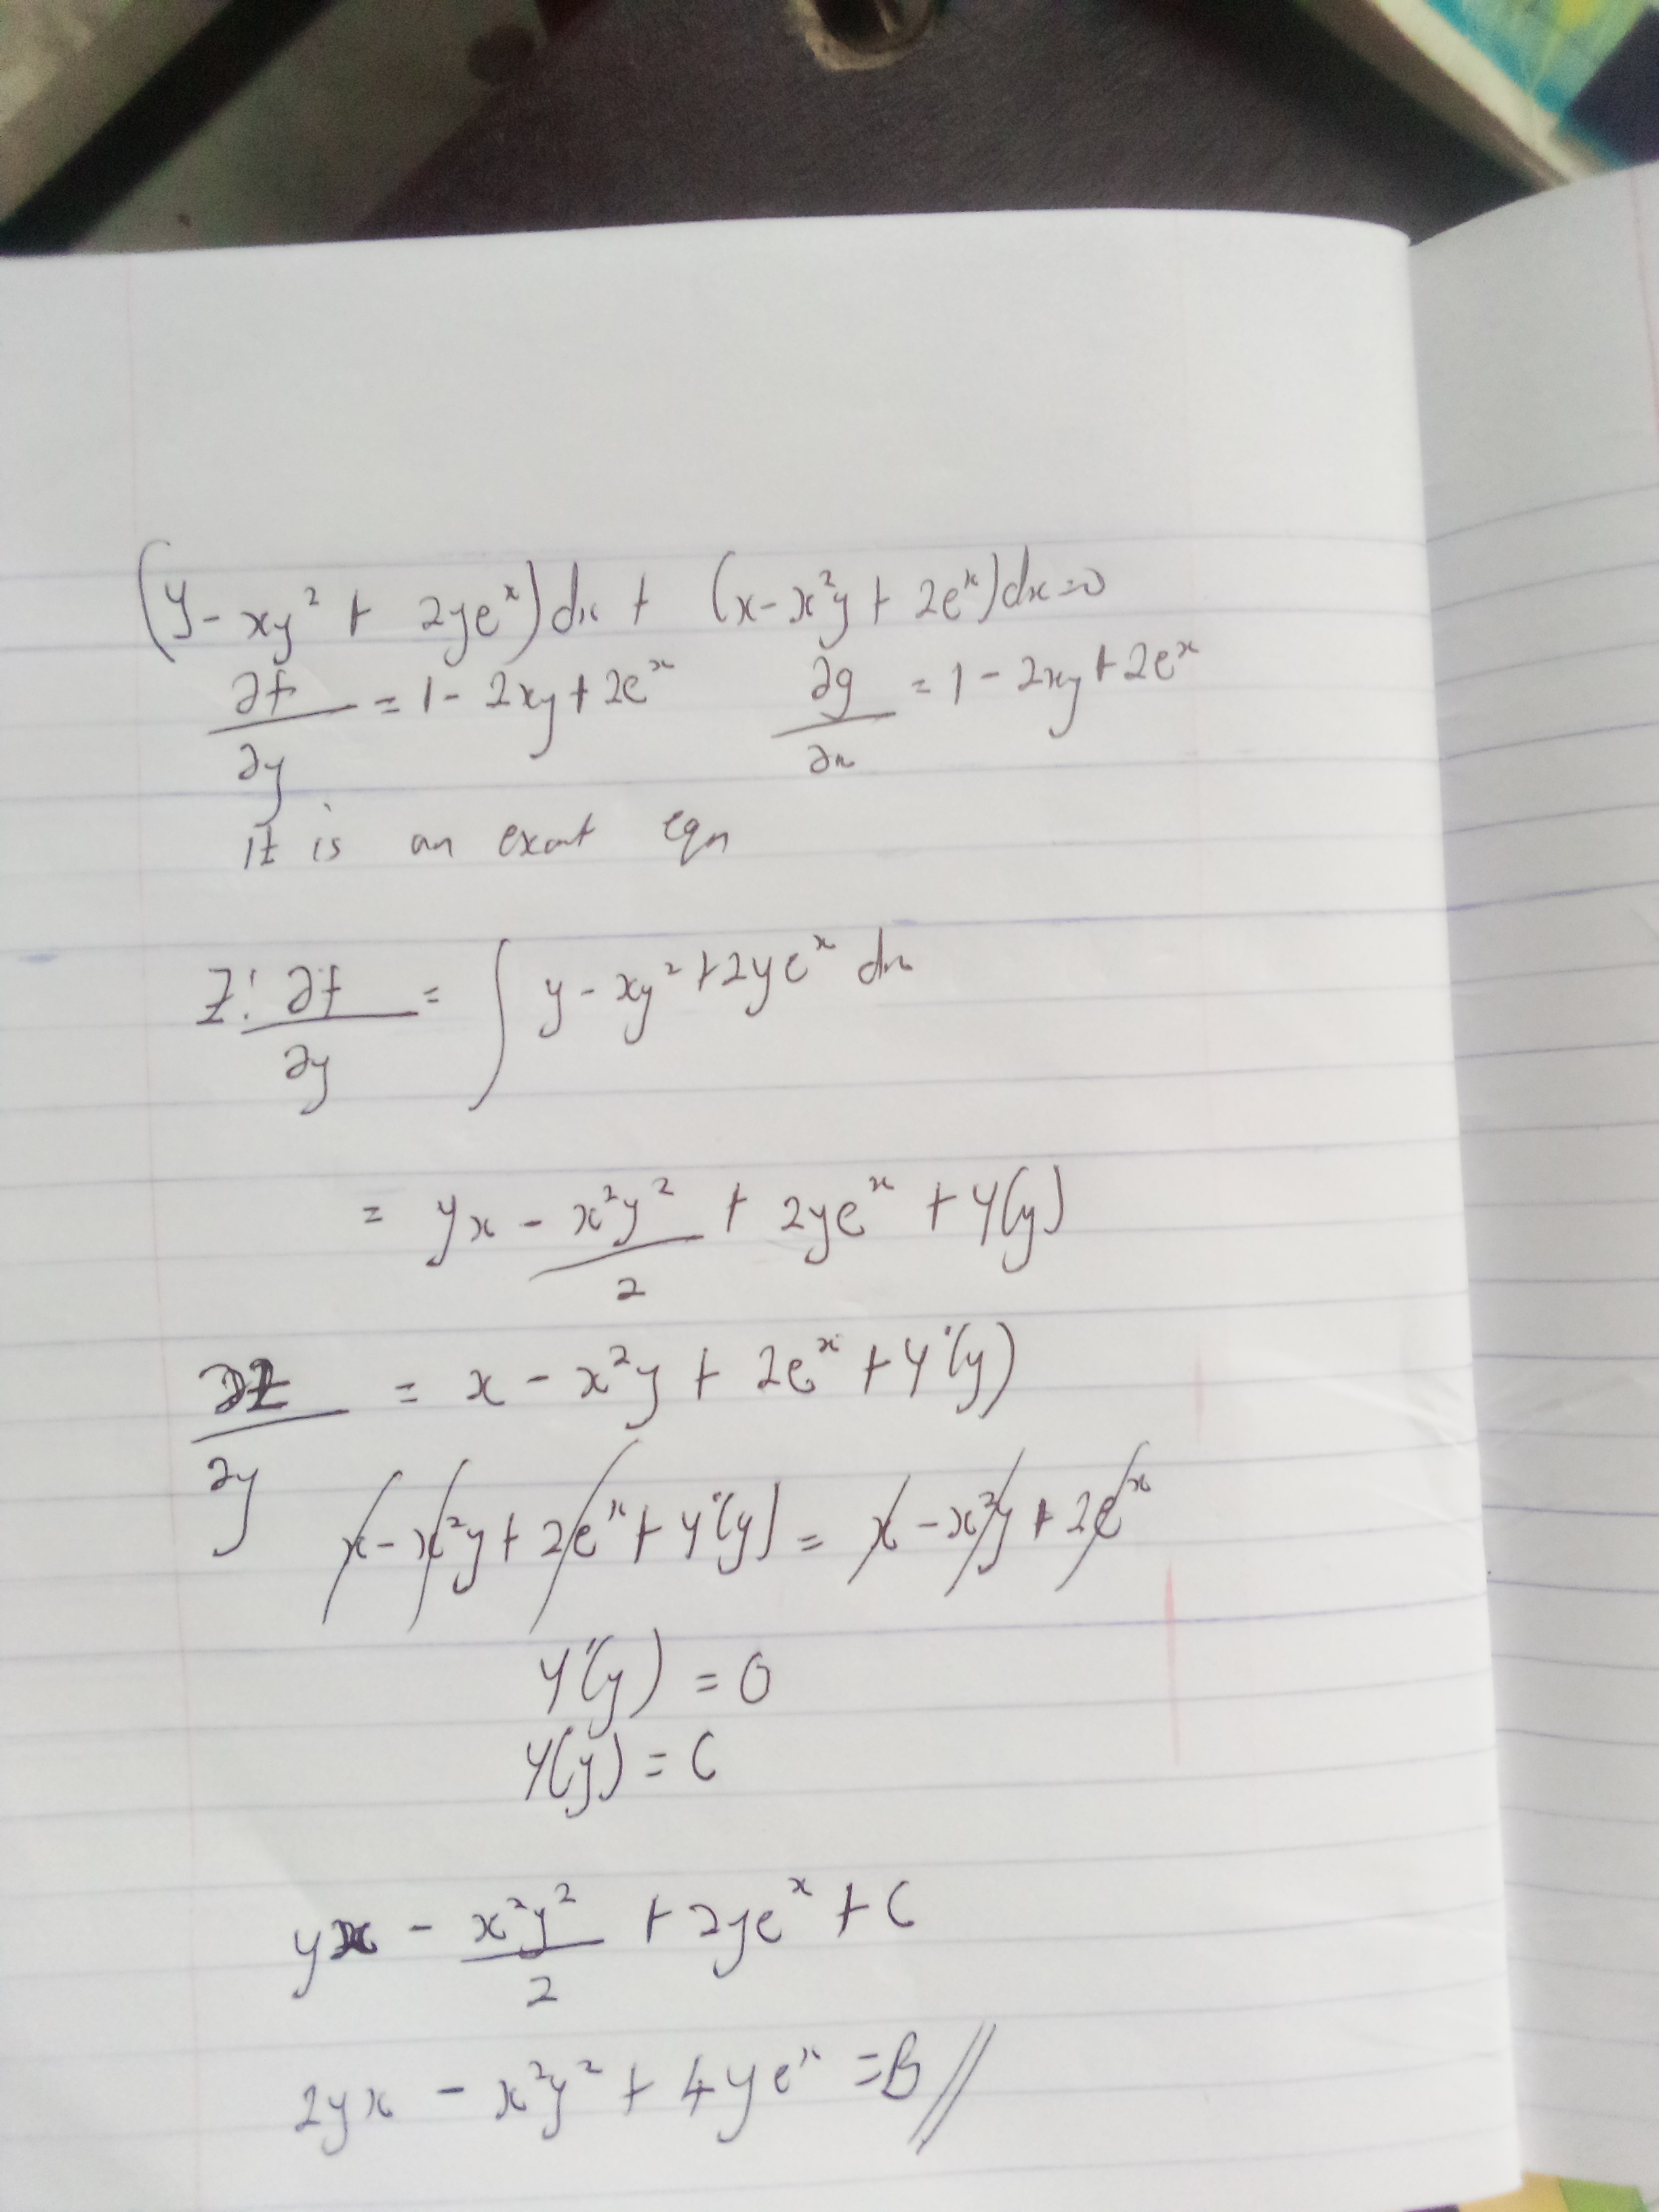 (y - xy² + 2yeˣ)dx + (x - x²y + 2eˣ)dx = 0
∂f/∂y = 1 - 2xy + 2eˣ ∂g/∂x = 1 - 2xy + 2eˣ
it is an exact eqn
Z: ∂f/∂y = ∫ y - xy² + 2yeˣ dx
= yx - x²y²/2 + 2yeˣ + Ψ(y)
∂Z/∂y = x - x²y + 2eˣ + Ψ'(y)
x - x²y + 2eˣ + Ψ'(y) = x - x²y + 2eˣ
Ψ'(y) = 0
Ψ(y) = C
yx - x²y²/2 + 2yeˣ + C
2yx - x²y² + 4yeˣ = B //